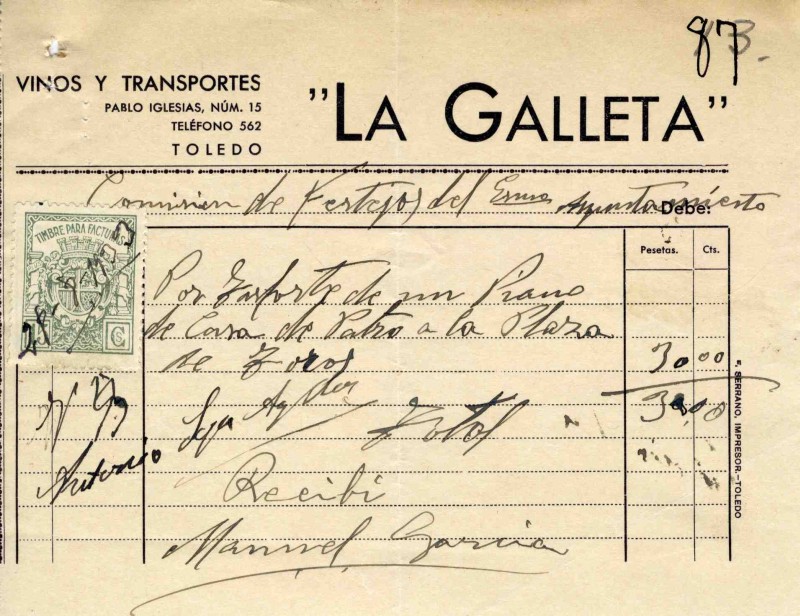 87 13.
VINOS Y TRANSPORTES
PABLO IGLESIAS, NÚM. 15
TELÉFONO 562
TOLEDO
"LA GALLETA"
Comision de Festejos del Exmo Ayuntamiento
Debe:
TIMBRE PARA FACTURAS
Pesetas. Cts.
Por trasporte de un Piano
de Casa de Patro a la Plaza
de Toros 30.00
Total 30,00
Antonio
Recibi
Manuel Garcia
F. SERRANO, IMPRESOR.-TOLEDO